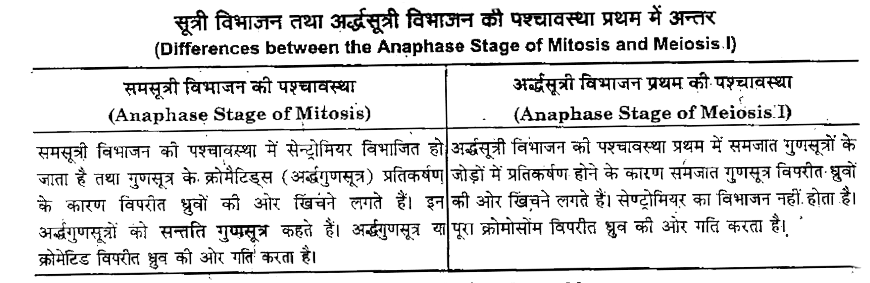 सूत्री विभाजन तथा अर्द्धसूत्री विभाजन की पश्चावस्था प्रथम में अन्तर
(Differences between the Anaphase Stage of Mitosis and Meiosis I)
समसूत्री विभाजन की पश्चावस्था
(Anaphase Stage of Mitosis)
समसूत्री विभाजन की पश्चावस्था में सेन्ट्रोमियर विभाजित हो
जाता है तथा गुणसूत्र के क्रोमैटिड्स (अर्द्धगुणसूत्र) प्रतिकर्षण
के कारण विपरीत ध्रुवों की ओर खिंचने लगते हैं। इन
अर्द्धगुणसूत्रों को सन्तति गुणसूत्र कहते हैं। अर्द्धगुणसूत्र या
क्रोमेटिड विपरीत ध्रुव की ओर गति करता है।
अर्द्धसूत्री विभाजन प्रथम की पश्चावस्था
(Anaphase Stage of Meiosis I)
अर्द्धसूत्री विभाजन की पश्चावस्था प्रथम में समजात गुणसूत्रों के
जोड़ों में प्रतिकर्षण होने के कारण समजात गुणसूत्र विपरीत ध्रुवों
की ओर खिंचने लगते हैं। सेण्ट्रोमियर का विभाजन नहीं होता है।
पूरा क्रोमोसोम विपरीत ध्रुव की ओर गति करता है।